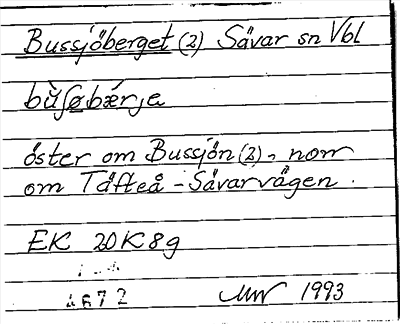 Bussjöberget (2) Sävar sn Vbl
bùʃøbǽrje
öster om Bussjön (2), norr
om Täfteå - Sävarvägen.
EK 20K8g
4672 1993